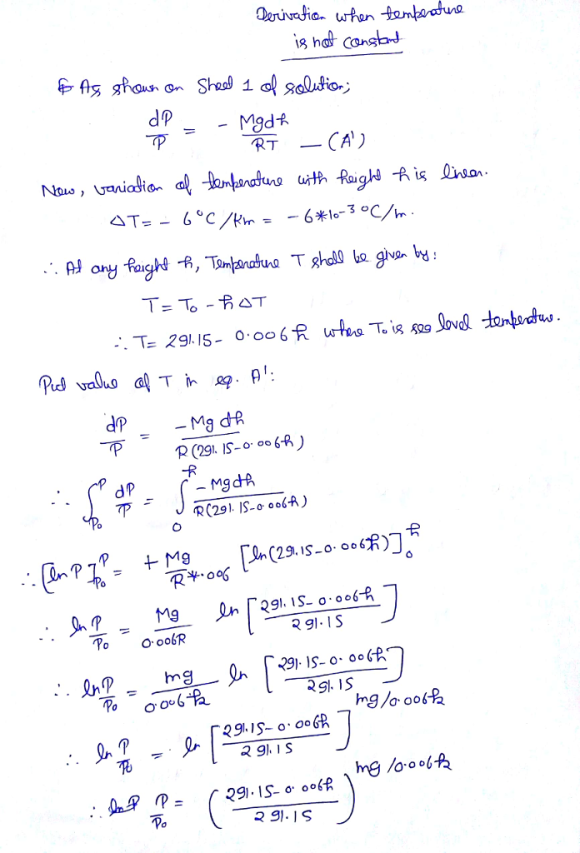 Derivation when temperature
is not constant
As shown on Sheet 1 of solution;
dP/P = - Mgdh/RT — (A')
Now, variation of temperature with height h is linear.
ΔT = - 6°C/km = - 6*10-3 °C/m.
∴ At any height h, Temperature T shall be given by:
T = To - hΔT
∴ T = 291.15 - 0.006h where To is sea level temperature.
Put value of T in eq. A':
dP/P = -Mg dh / R(291.15-0.006h)
∴ ∫_{Po}^{P} dP/P = ∫_{0}^{h} -Mgdh / R(291.15-0.006h)
∴ [ln P]_{Po}^{P} = + Mg/R*.006 [ln(291.15-0.006h)]_{0}^{h}
∴ ln P/Po = Mg/0.006R ln [291.15-0.006h / 291.15]
∴ ln P/Po = mg/0.006k ln [291.15-0.006h / 291.15]
∴ ln P/Po = ln [291.15-0.006h / 291.15]^{mg/0.006k}
∴ P/Po = (291.15-0.006h / 291.15)^{mg/0.006k}